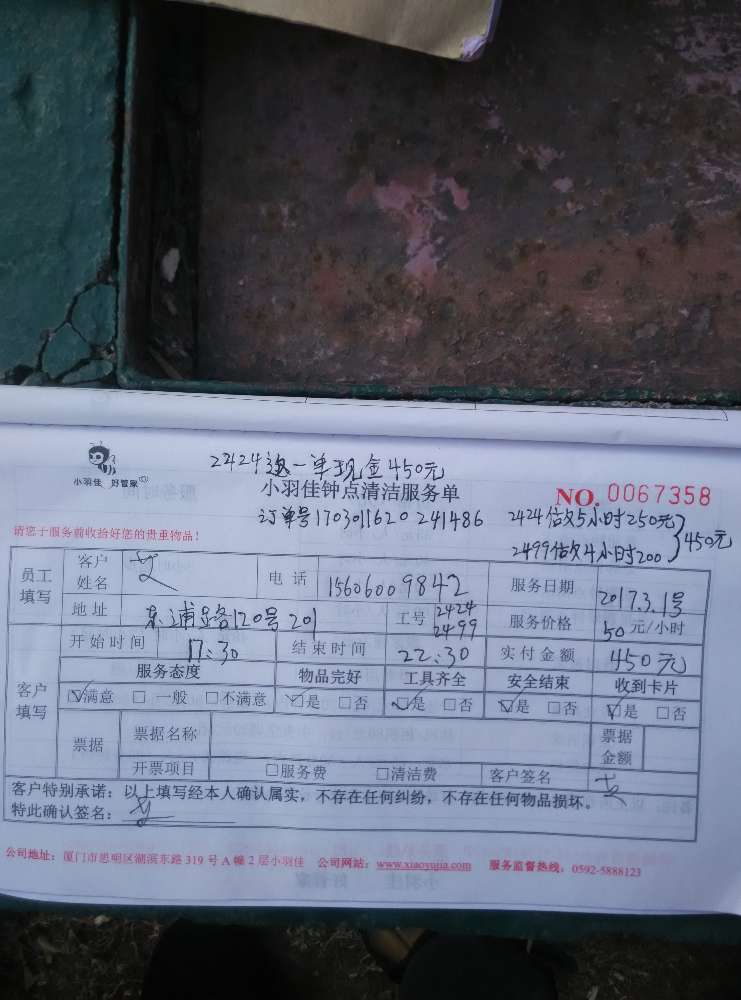 2424这一单现金450元
小羽佳 好管家
小羽佳钟点清洁服务单
NO. 0067358
订单号1703011620241486
2424估欠5小时250元
2499估欠4小时200
450元
请您于服务前收拾好您的贵重物品!
员工填写 客户姓名 电话 15606009842 服务日期 2017.3.1号
地址 东浦路120号201 工号 2424 2499 服务价格 50元/小时
客户填写 开始时间 17:30 结束时间 22:30 实付金额 450元
服务态度 物品完好 工具齐全 安全结束 收到卡片
☑满意 □一般 □不满意 ☑是 □否 ☑是 □否 ☑是 □否 ☑是 □否
票据 票据名称 票据金额
开票项目 □服务费 □清洁费 客户签名
客户特别承诺:以上填写经本人确认属实,不存在任何纠纷,不存在任何物品损坏。
特此确认签名:
公司地址:厦门市思明区湖滨东路319号A幢2层小羽佳 公司网站:www.xiaoyujia.com 服务监督热线:0592-5888123